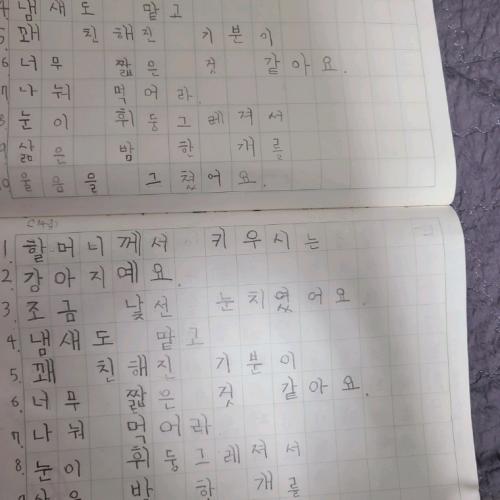 4. 냄새도 맡고
5. 꽤 친해진 기분이
6. 너무 짧은 것 같아요.
7. 나눠 먹어라.
8. 눈이 휘둥그레져서
9. 삶은 밤 한 개를
10. 울음을 그쳤어요.
(4급)
1. 할머니께서 키우시는
2. 강아지예요.
3. 조금 낯선 눈치였어요.
4. 냄새도 맡고
5. 꽤 친해진 기분이
6. 너무 짧은 것 같아요.
7. 나눠 먹어라.
8. 눈이 휘둥그레져서
삶은 밤 한 개를